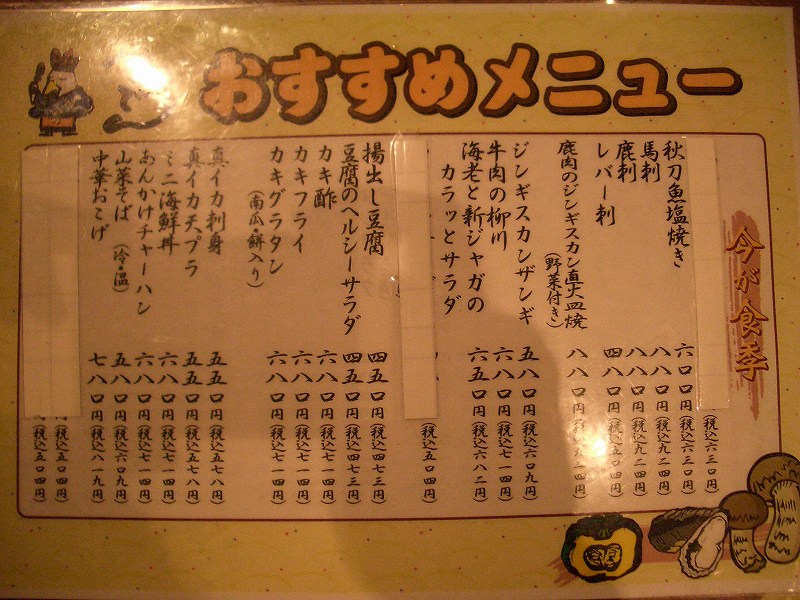 おすすめメニュー
今が食季
(税込六三〇円)
秋刀魚塩焼き 六〇〇円(税込六三〇円)
馬刺 八八〇円(税込九二四円)
鹿刺 八八〇円(税込九二四円)
レバー刺 四八〇円(税込五〇四円)
鹿肉のジンギスカン直火皿焼 (野菜付き) 八八〇円
ジンギスカンザンギ 五八〇円(税込六〇九円)
牛肉の柳川 六八〇円(税込七一四円)
海老と新ジャガのカラッとサラダ 六五〇円(税込六八二円)
(税込五〇四円)
揚出し豆腐 四五〇円(税込四七三円)
豆腐のヘルシーサラダ 四五〇円(税込四七三円)
カキ酢 六八〇円(税込七一四円)
カキフライ 六八〇円(税込七一四円)
カキグラタン (南瓜・餅入り) 六八〇円(税込七一四円)
真イカ刺身 五五〇円(税込五七八円)
真イカ天プラ 五五〇円(税込五七八円)
ミニ海鮮丼 六八〇円(税込七一四円)
あんかけチャーハン 六八〇円(税込七一四円)
山菜そば (冷・温) 五八〇円(税込六〇九円)
中華おこげ 七八〇円(税込八一九円)
(税込五〇四円)
(税込五〇四円)